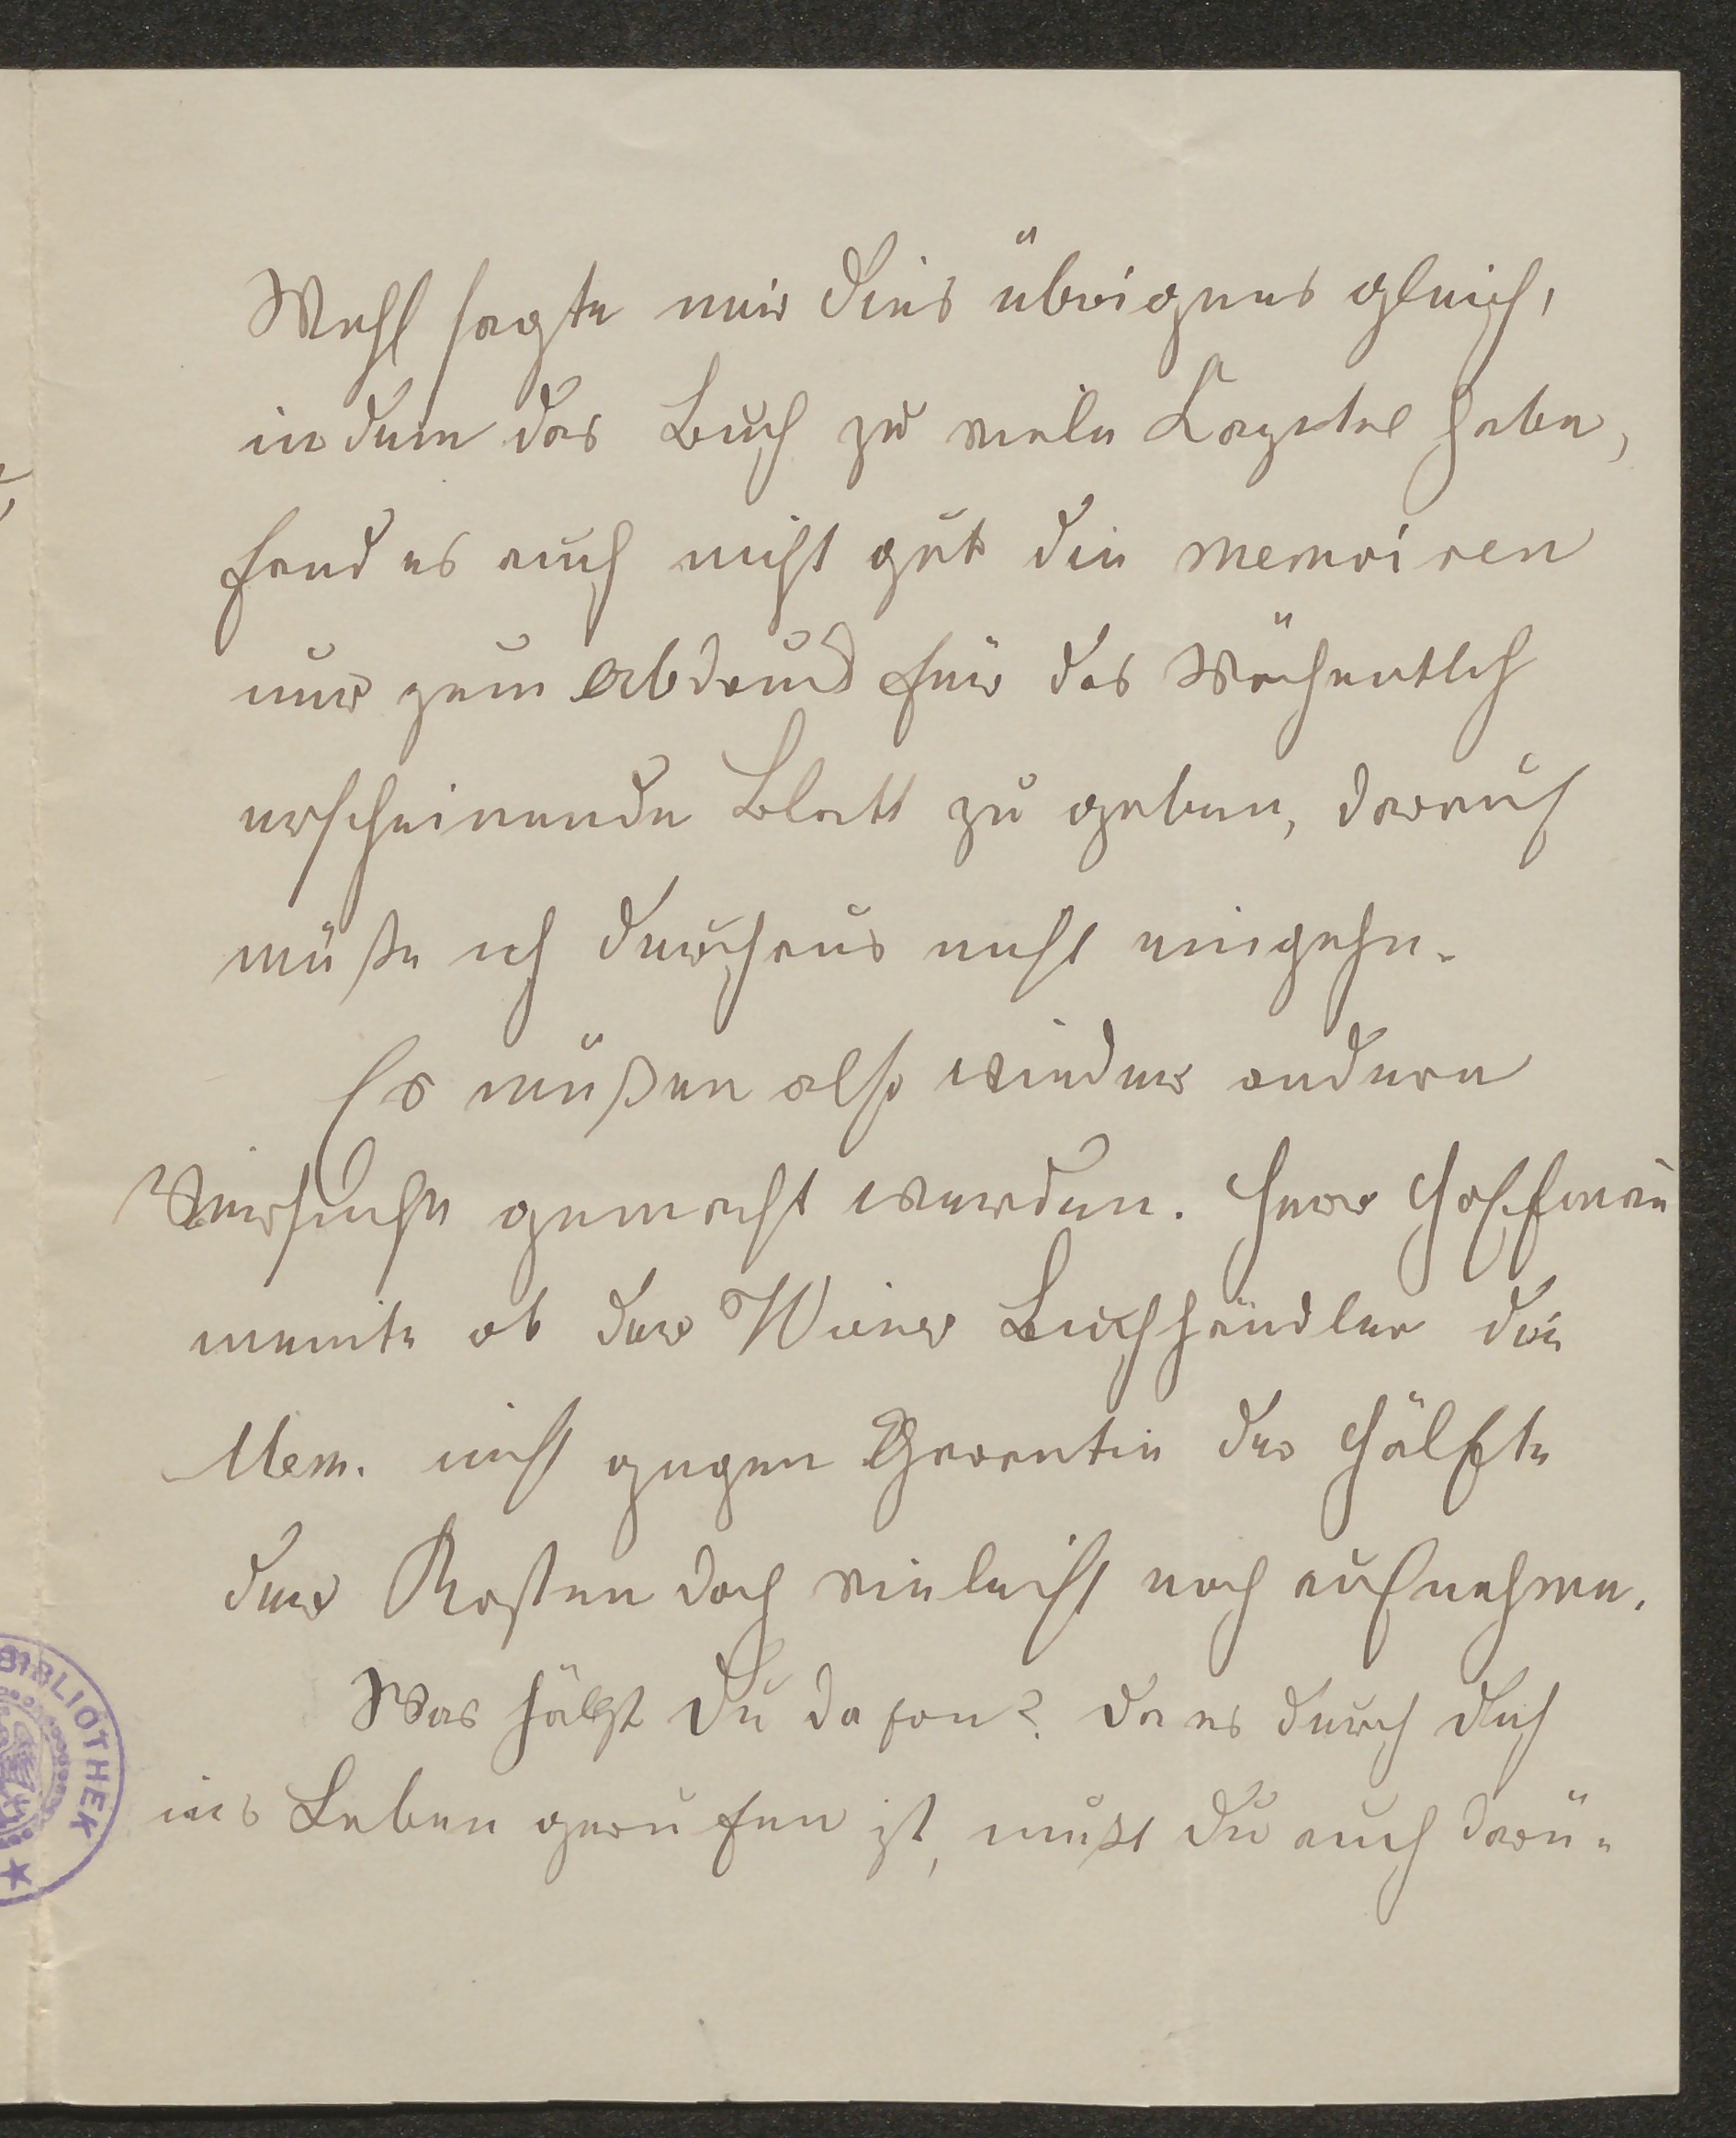 Wehl sagte mir dies übrigens gleich,
indem das Buch zu viele Kapitel habe,
fand es auch nicht gut die Memoiren
nur zum Abdruck für das Wöchentlich
erscheinende Blatt zu geben, darauf
müße ich durchaus nicht eingehn.
Es müßen also wieder andere
Versuche gemacht werden. Herr Hoffman̄
meinte ob der Wiener Buchhändler die
Mem. nicht gegen Garantie der Hälfte
der Kosten doch vieleicht noch aufnehme.
Was hälst Du dafon? Da es durch Dich
ins Leben gerufen ist, mußt Du auch darü-
BIBLIOTHEK